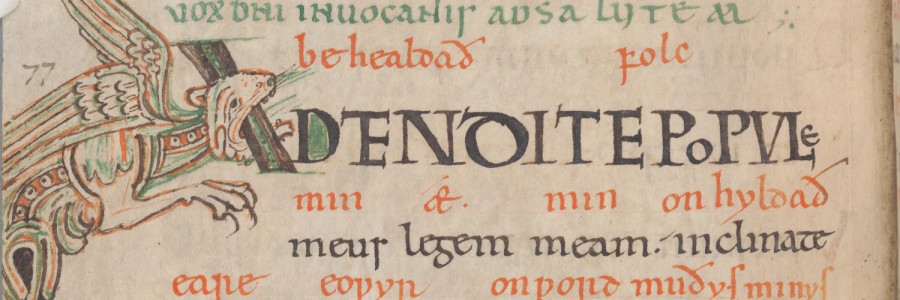 VOX DNI INUOCANTIS AD SALUTEM
behealdað folc
77
ADTENDITE POPULE
min æ. min onhyldað
meus legem meam. inclinate
eare eoƿyr onƿord muðys minys